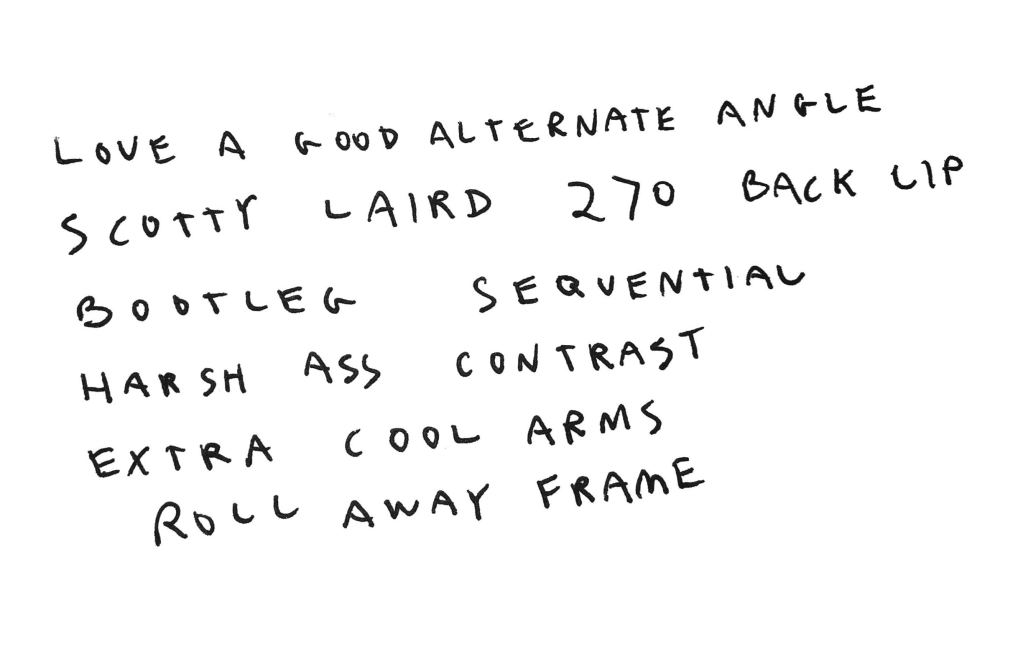 LOVE A GOOD ALTERNATE ANGLE
SCOTTY LAIRD 270 BACK LIP
BOOTLEG SEQUENTIAL
HARSH ASS CONTRAST
EXTRA COOL ARMS
ROLL AWAY FRAME